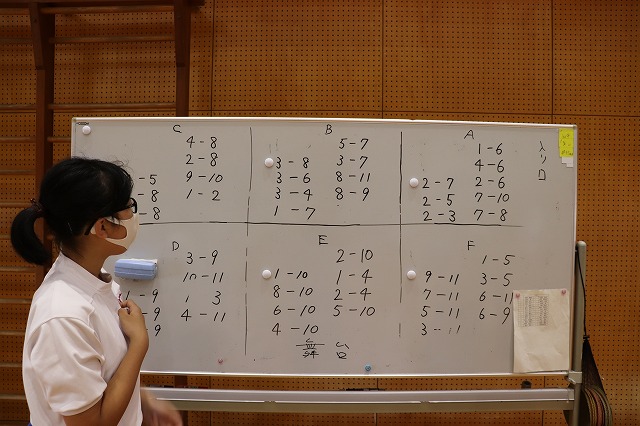 C
4-8
2-8
9-10
-5
1-2
-8
-8
B
5-7
3-8
3-7
3-6
8-11
3-4
8-9
1-7
A
1-6
4-6
2-7
2-6
2-5
7-10
2-3
7-8
入り口
D
3-9
10-11
-9
1 3
-9
4-11
9
E
2-10
1-10
1-4
8-10
2-4
6-10
5-10
4-10
F
1-5
9-11
3-5
7-11
6-11
5-11
6-9
3-11